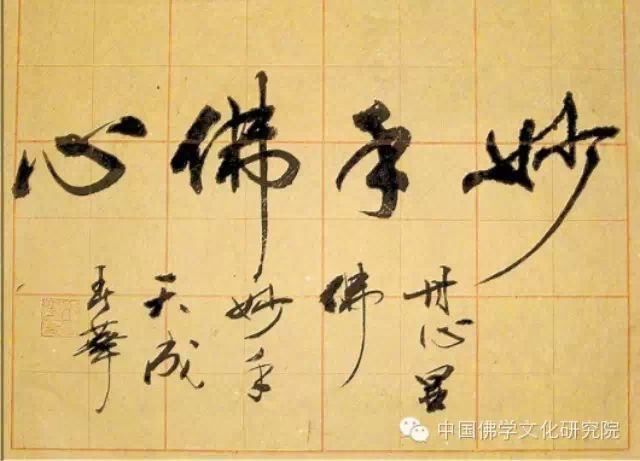 妙手佛心
丹心
佛
妙手
天成
華
中国佛学文化研究院